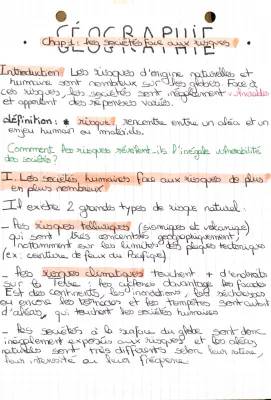 GÉOGRAPHIE
Chap 1 : Les sociétés face aux risques
Introduction: Les risques d'origine naturelles et
humaine sont nombreux sur les globes. Face à
ces risques, les sociétés sont inégalement vulnérables
et apportent des réponses variés.
définition : * risque, rencontre entre un aléa et un
enjeu humain ou matériels.
Comment les risques révèlent-ils l'inégale vulnérabilité
des sociétés ?
I. Les sociétés humaines face aux risques de plus
en plus nombreux
Il existe 2 grands types de risque naturel :
- Les risques telluriques (sismiques et volcanique)
qui sont très concentrés géographiquement,
notamment sur les limites des plaques tectoniques
(ex : ceinture de feux du Pacifique)
- Les risques climatiques touchent + d'endroits
sur la Terre : les cyclones davantage les façades
Est des continents, les inondations, les sécheresses
ou encore les tornades et les tempêtes sont autant
d'aléas, qui touchent les sociétés humaines
- Les sociétés à la surface du globe sont donc
inégalement exposées aux risques et les aléas
naturelles sont très différents selon leur nature,
leur intensité ou leur fréquence